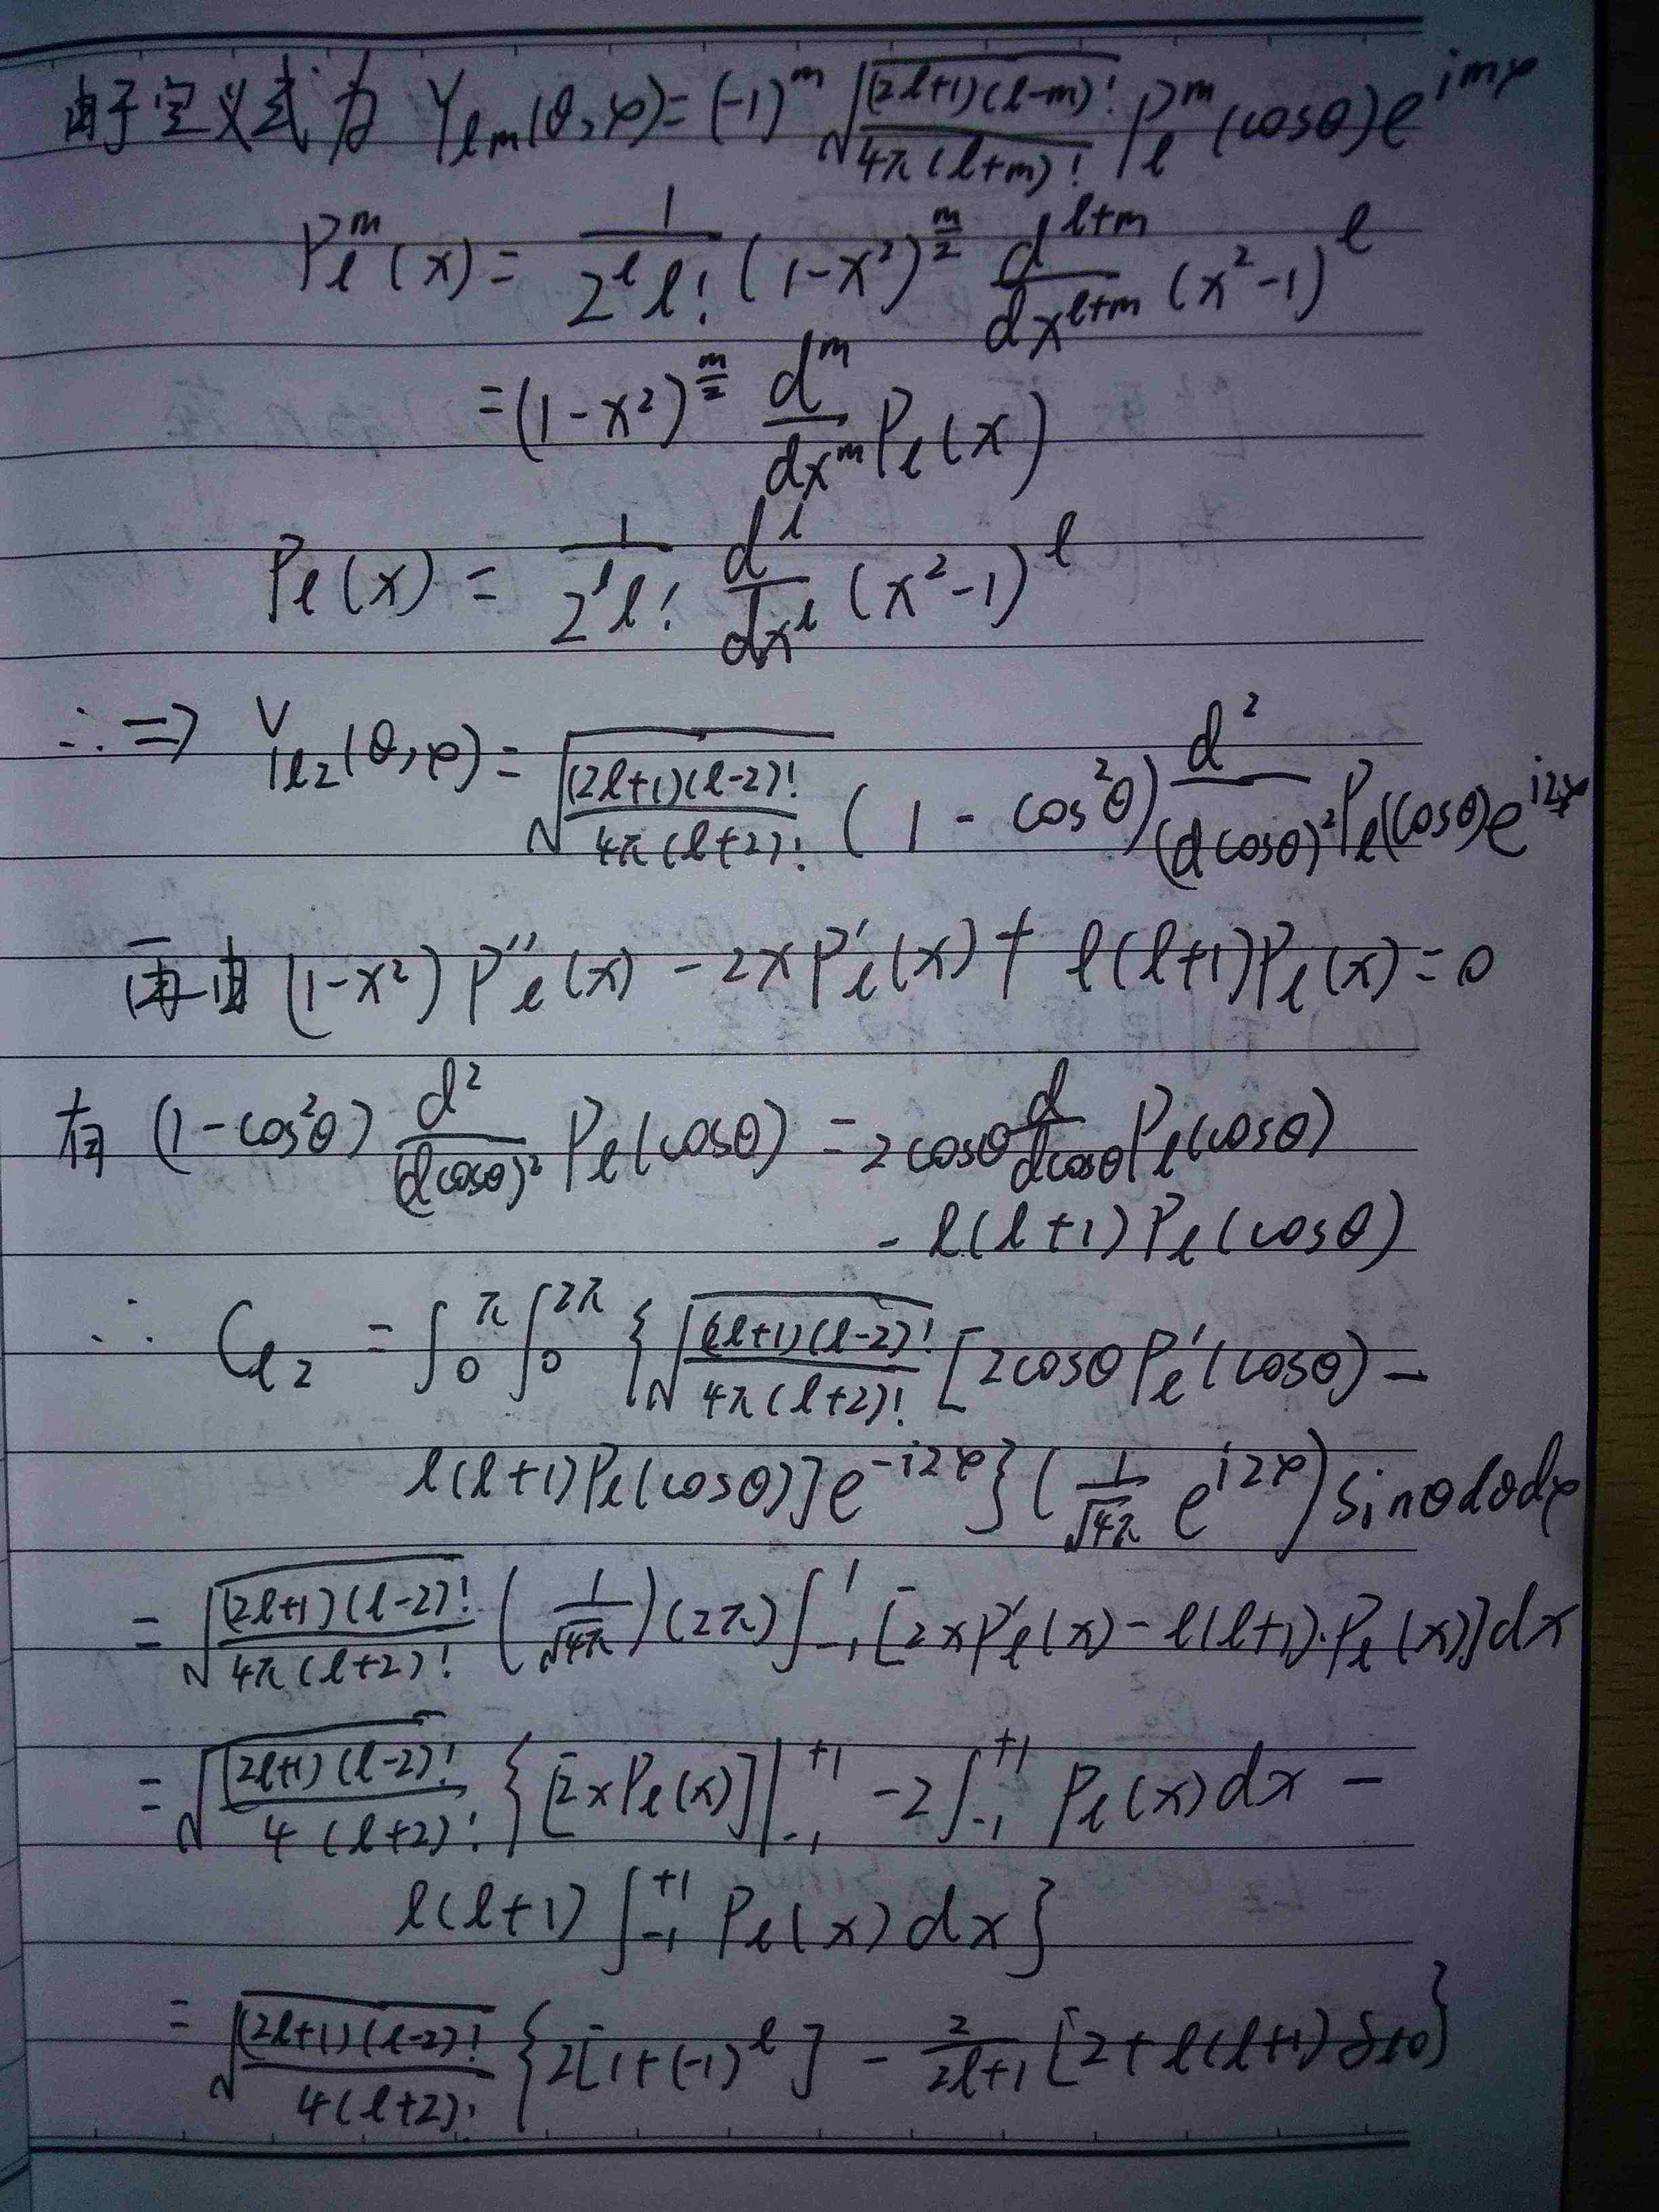 由于定义式为 Yℓm(θ,φ)=(-1)^m √((2ℓ+1)(ℓ-m)!/4π(ℓ+m)!) Pℓ^m(cosθ)e^{imφ}
Pℓ^m(x)= 1/(2^ℓ ℓ!) (1-x²)^{m/2} d^{ℓ+m}/dx^{ℓ+m} (x²-1)^ℓ
=(1-x²)^{m/2} d^m/dx^m Pℓ(x)
Pℓ(x) = 1/(2^ℓ ℓ!) d^ℓ/dx^ℓ (x²-1)^ℓ
∴⇒ Yℓ2(θ,φ)=√((2ℓ+1)(ℓ-2)!/4π(ℓ+2)!) (1-cos²θ) d²/(dcosθ)² Pℓ(cosθ)e^{i2φ}
再由 (1-x²)P''ℓ(x)-2xP'ℓ(x)+ℓ(ℓ+1)Pℓ(x)=0
有 (1-cos²θ) d²/(dcosθ)² Pℓ(cosθ) = 2cosθ d/dcosθ Pℓ(cosθ)
-ℓ(ℓ+1)Pℓ(cosθ)
∴ Cℓ2 = ∫_0^π ∫_0^{2π} {√((2ℓ+1)(ℓ-2)!/4π(ℓ+2)!) [2cosθPℓ'(cosθ)-
ℓ(ℓ+1)Pℓ(cosθ)]e^{-i2φ}}(1/√4π e^{i2φ})sinθdθdφ
= √((2ℓ+1)(ℓ-2)!/4π(ℓ+2)!) (1/√4π)(2π)∫_{-1}^{1}[2xP'ℓ(x)-ℓ(ℓ+1)·Pℓ(x)]dx
= √((2ℓ+1)(ℓ-2)!/4(ℓ+2)!) {[2xPℓ(x)]|_{-1}^{+1} -2∫_{-1}^{+1} Pℓ(x)dx -
ℓ(ℓ+1)∫_{-1}^{+1} Pℓ(x)dx}
= √((2ℓ+1)(ℓ-2)!/4(ℓ+2)!) {2[1+(-1)^ℓ] - 2/(2ℓ+1) [2+ℓ(ℓ+1)δℓ0}